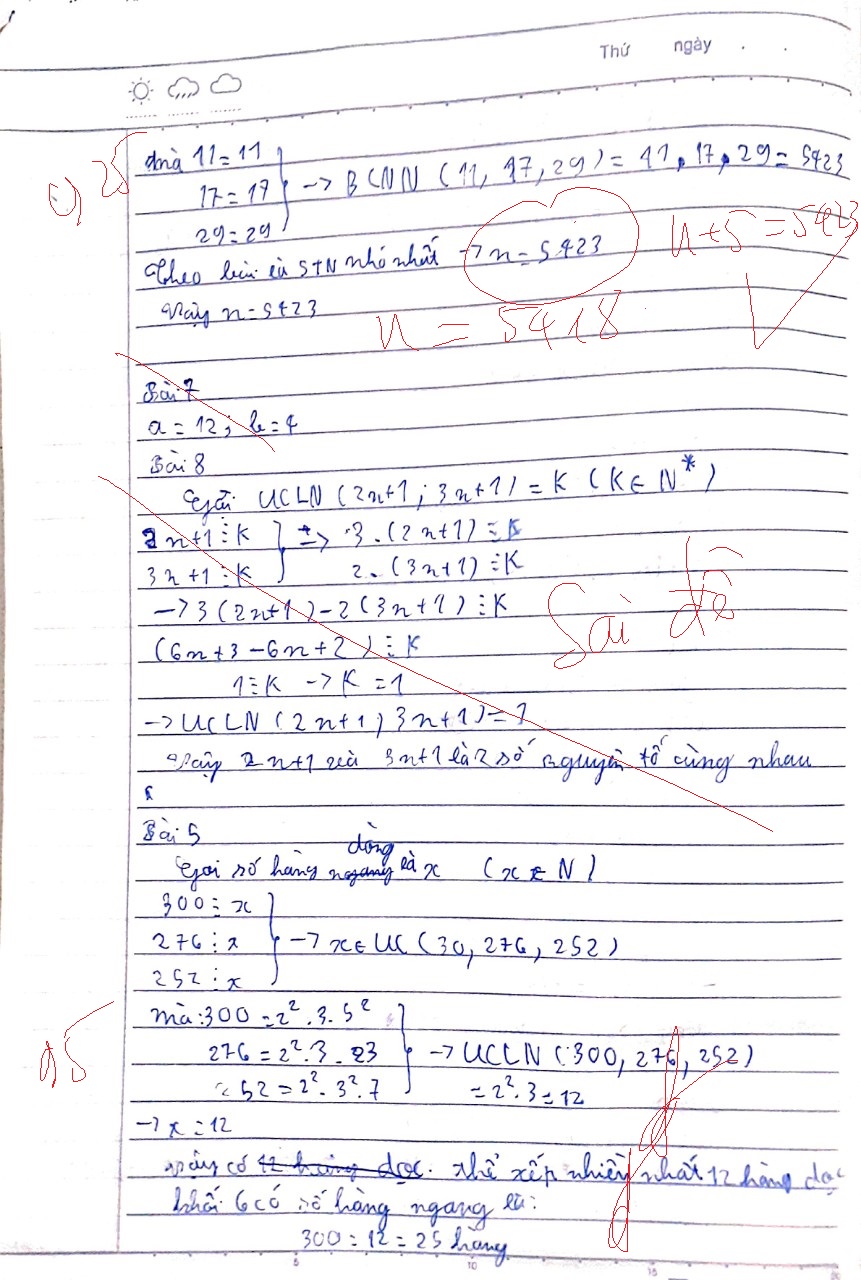 Thứ ngày . .
mà 11 = 11
17 = 17
29 = 29
→ BCNN (11, 17, 29) = 11.17.29 = 5423
n+5 = 5423
Theo là STN nhỏ nhất → n = 5423
Vậy n = 5423
n = 5418
Bài 7
a = 12; b = 4
Bài 8
Gọi UCLN (2n+1; 3n+1) = K (K ∈ N*)
2n+1 ⋮ K
3n+1 ⋮ K
=> 3.(2n+1) ⋮ K
2.(3n+1) ⋮ K
→ 3(2n+1) - 2(3n+1) ⋮ K
(6n+3-6n+2) ⋮ K
Sai đề
1 ⋮ K → K = 1
→ UCLN (2n+1, 3n+1) = 1
Vậy 2n+1 và 3n+1 là 2 số nguyên tố cùng nhau
Bài 5
Gọi số hàng ngang dòng là x (x ∈ N)
300 ⋮ x
276 ⋮ x
252 ⋮ x
→ x ∈ UC (30, 276, 252)
mà: 300 = 2².3.5²
276 = 2².3.23
252 = 2².3².7
→ UCLN (300, 276, 252)
= 2².3 = 12
→ x = 12
Vậy có 12 hàng dọc. thể xếp nhiều nhất 12 hàng dọc
khối 6 có số hàng ngang là:
300 : 12 = 25 hàng
5 10 15 20